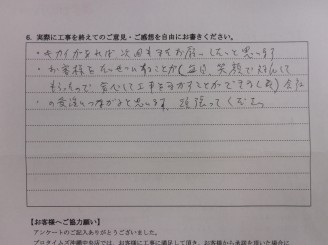 6. 実際に工事を終えてのご意見・ご感想を自由にお書きください。
・キカイがあれば次回もまたお願いしたいと思ってます
・お客様を大いせつにすることが(毎日、笑顔で対応して
もらったので安心して工事をまかすことができました)会社
の発展につながると思います、頑張ってください
【お客様へご協力願い】
アンケートのご記入ありがとうございました。
プロタイムズ沖縄中央店では、お客様に工事に満足して頂き、お客様から承諾を頂いた場合に